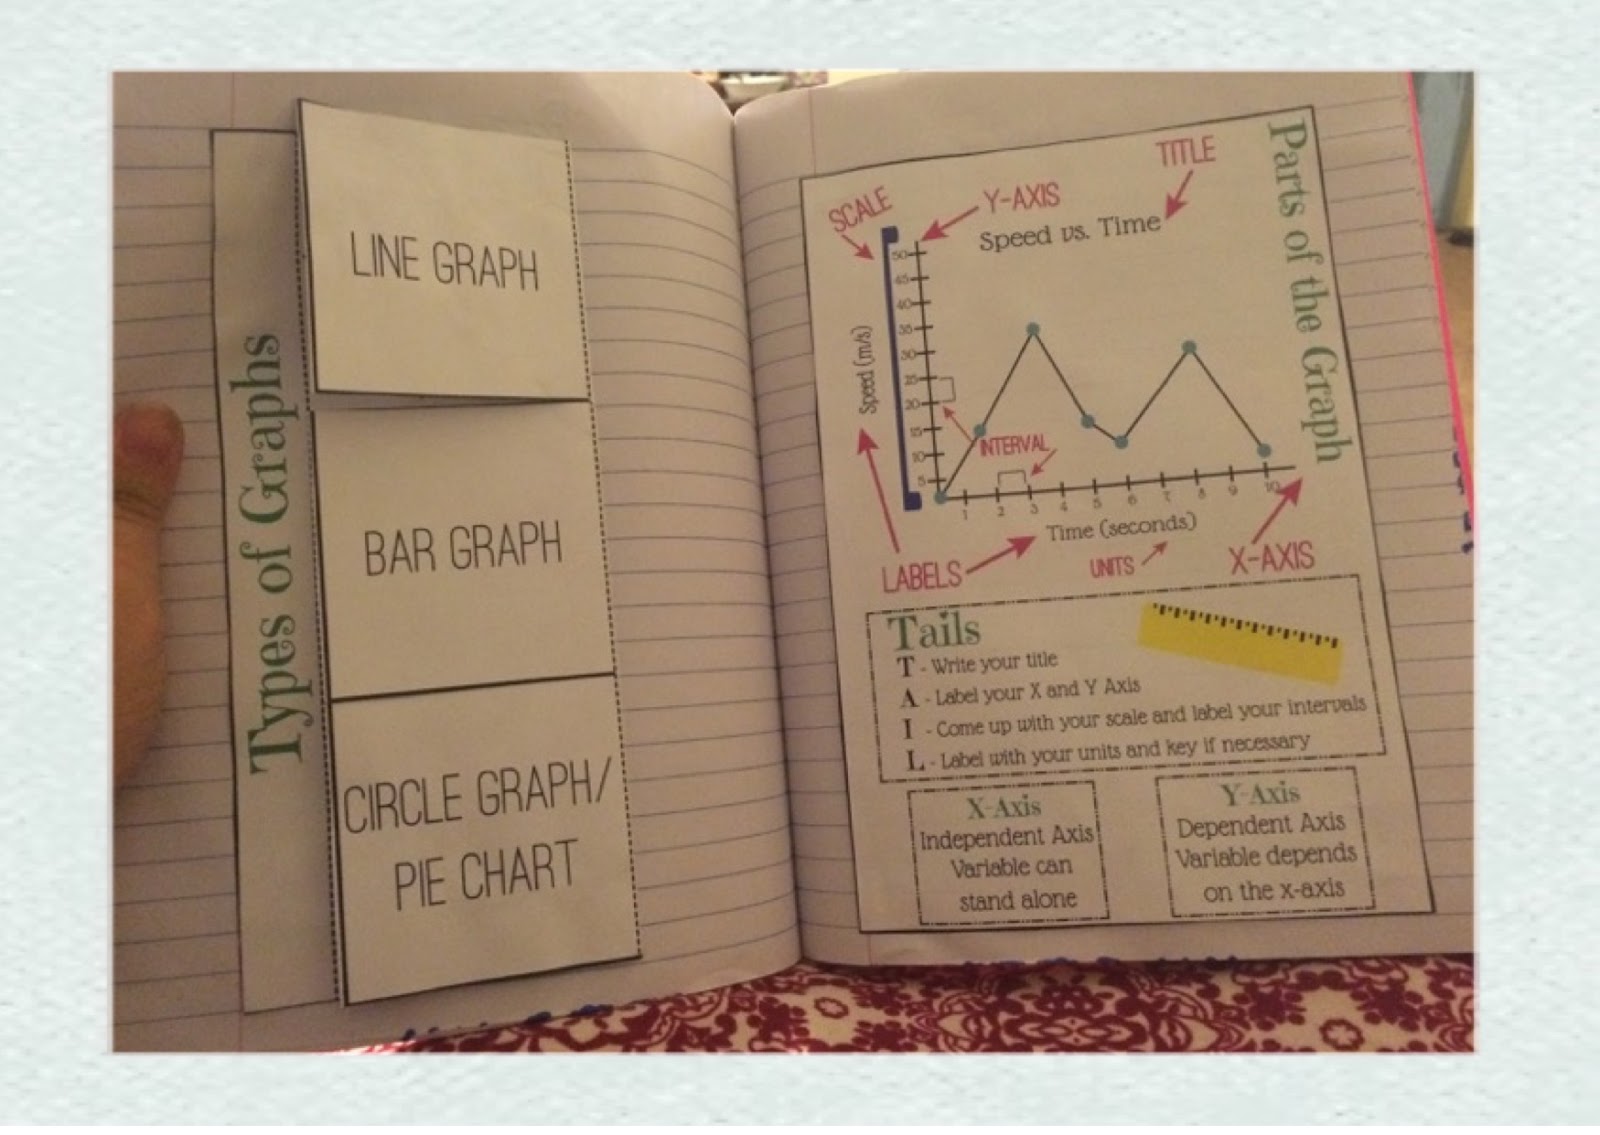 Types of Graphs
LINE GRAPH
BAR GRAPH
CIRCLE GRAPH/
PIE CHART
Parts of the Graph
TITLE
SCALE
Y-AXIS
Speed vs. Time
50
45
40
35
30
25
20
15
10
5
Speed (m/s)
INTERVAL
1 2 3 4 5 6 7 8 9 10
Time (seconds)
LABELS
UNITS
X-AXIS
Tails
T - Write your title
A - Label your X and Y Axis
I - Come up with your scale and label your intervals
L - Label with your units and key if necessary
X-Axis
Independent Axis
Variable can
stand alone
Y-Axis
Dependent Axis
Variable depends
on the x-axis